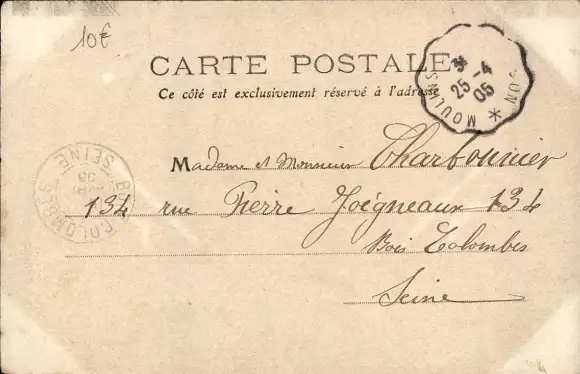 10€
CARTE POSTALE
Ce côté est exclusivement réservé à l'adresse
MOULINS
3e
25-4
05
Madame et Monsieur Charbonnier
134 rue Pierre Joigneaux 134
Bois Colombes
Seine
COLOMBES
SEINE
05